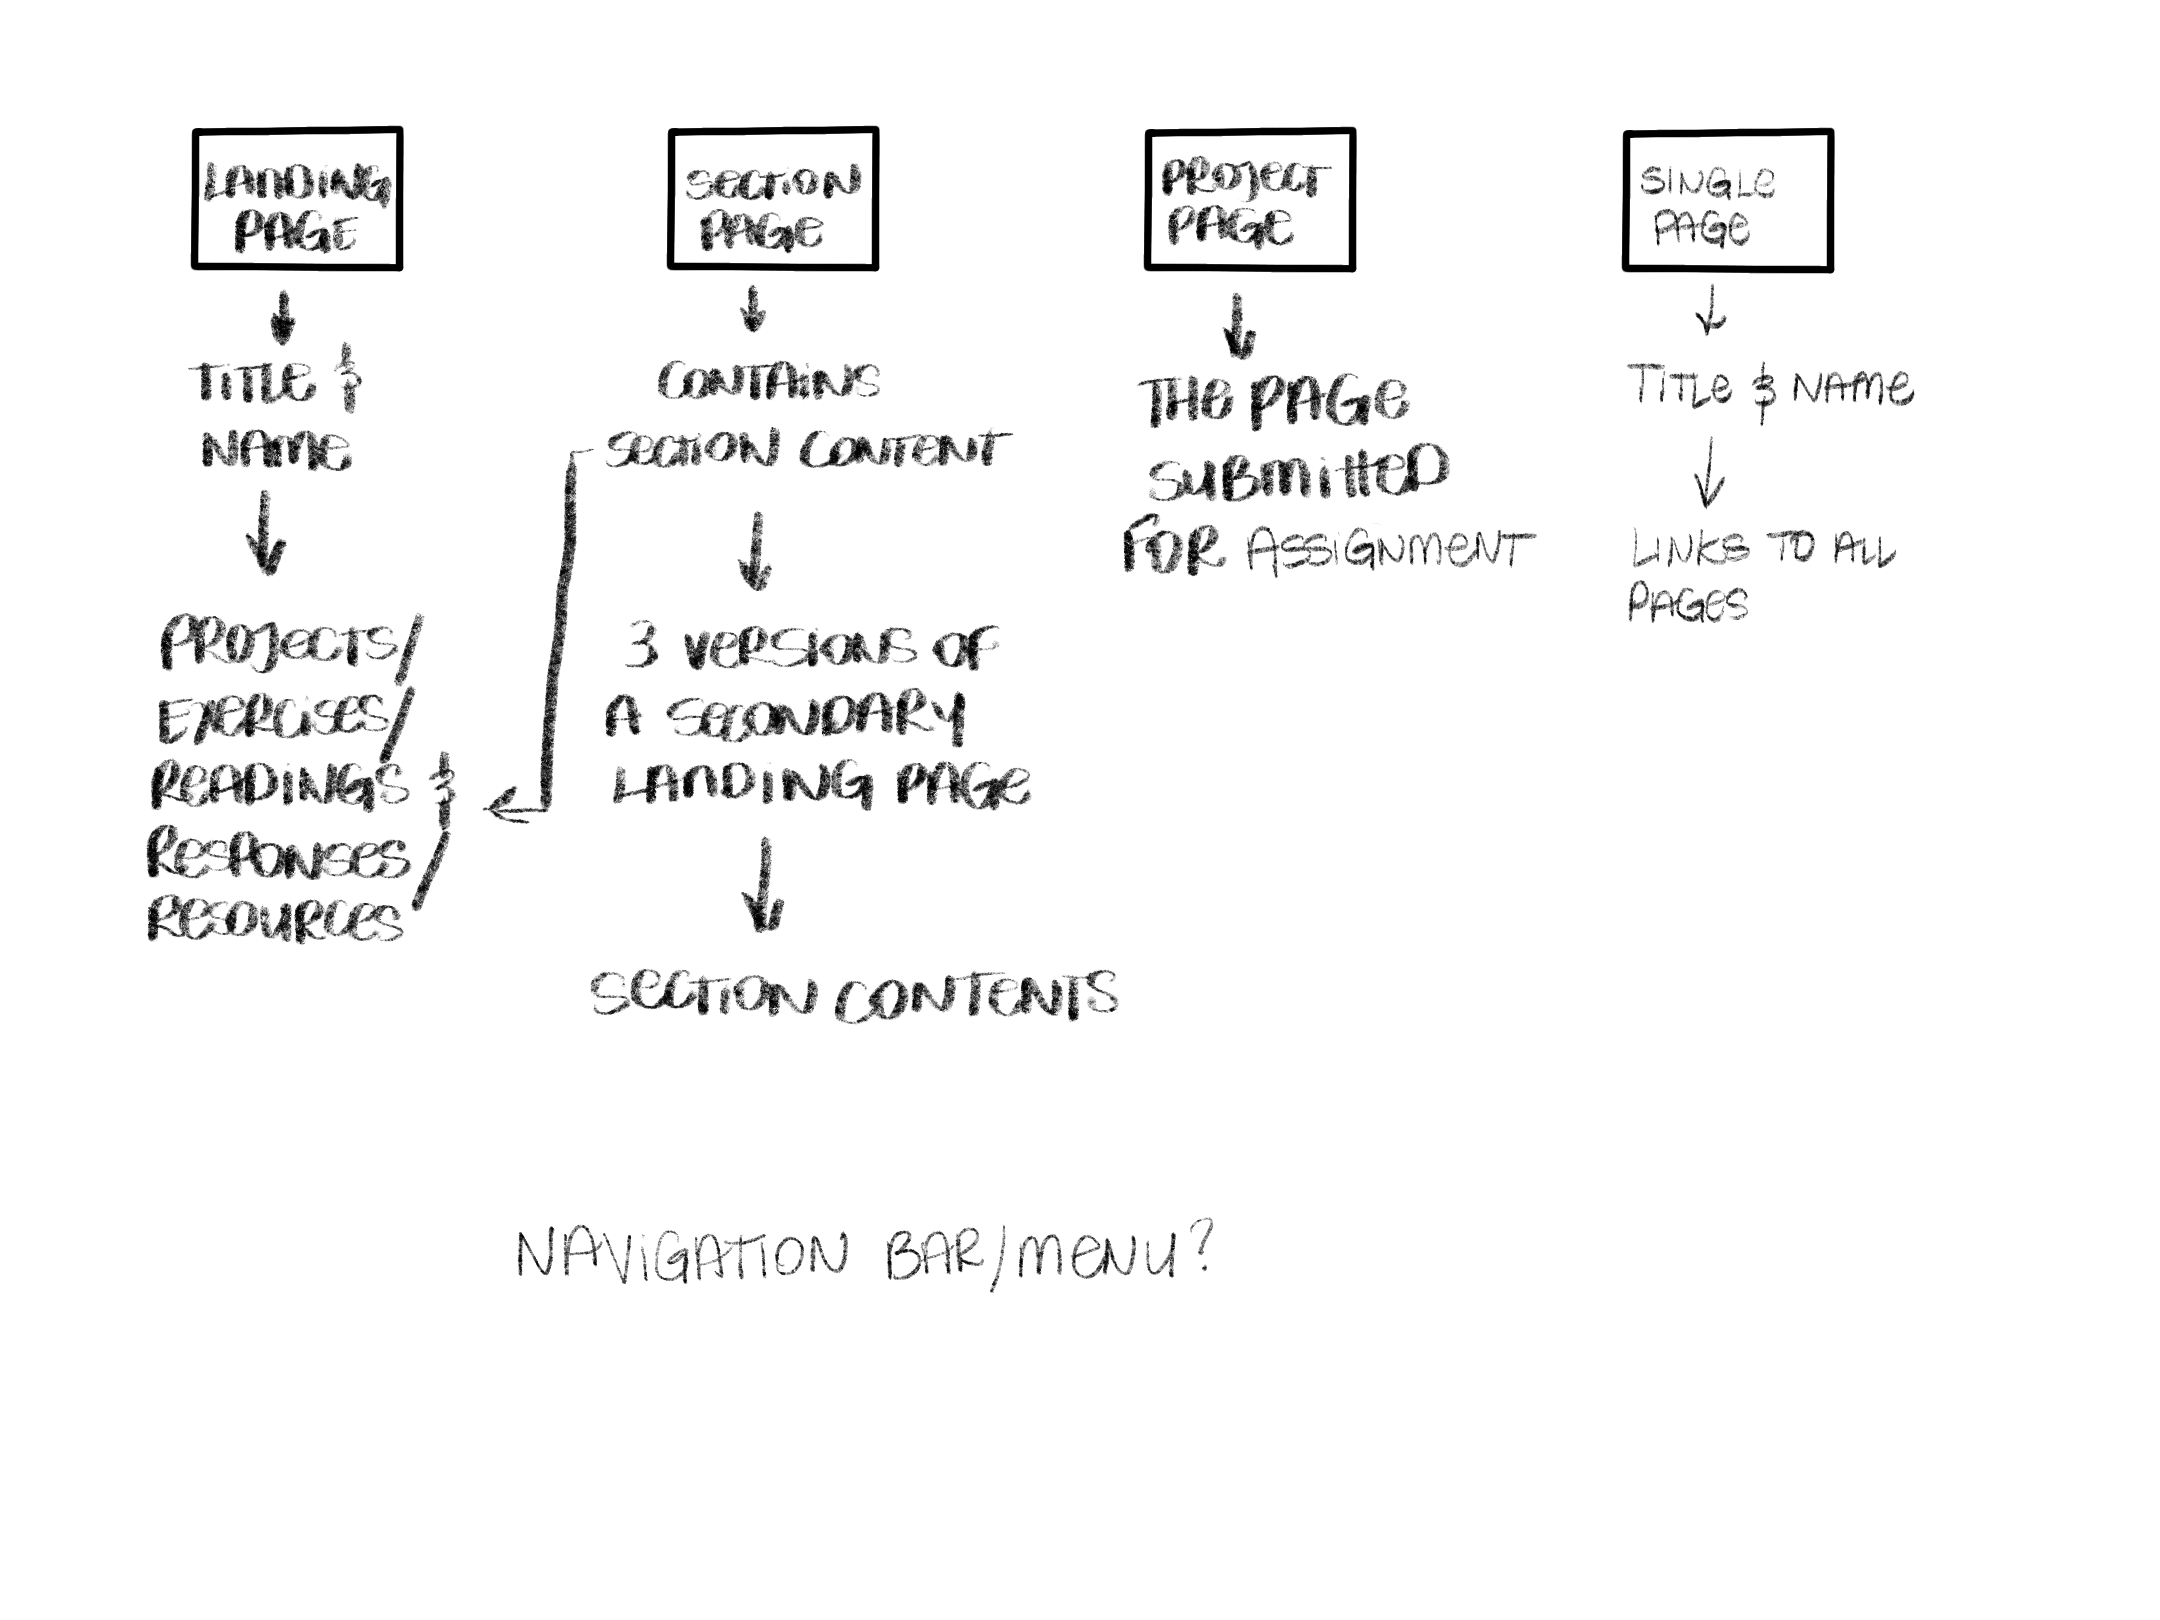 LANDING
PAGE
TITLE &
NAME
PROJECTS/
EXERCISES/
READINGS &
RESPONSES/
RESOURCES
SECTION
PAGE
CONTAINS
SECTION CONTENT
3 VERSIONS OF
A SECONDARY
LANDING PAGE
SECTION CONTENTS
PROJECT
PAGE
THE PAGE
SUBMITTED
FOR ASSIGNMENT
SINGLE
PAGE
TITLE & NAME
LINKS TO ALL
PAGES
NAVIGATION BAR/MENU?